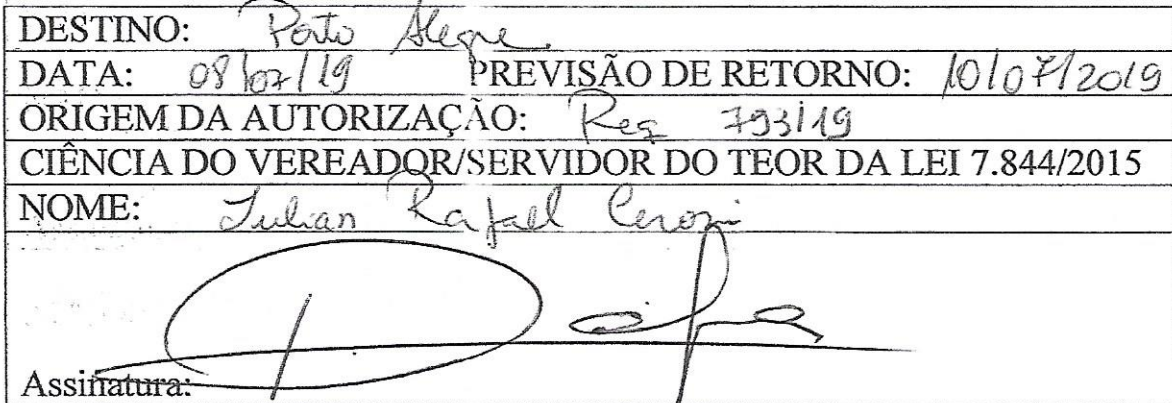 DESTINO: Porto Alegre
DATA: 08/07/19 PREVISÃO DE RETORNO: 10/07/2019
ORIGEM DA AUTORIZAÇÃO: Req 793/19
CIÊNCIA DO VEREADOR/SERVIDOR DO TEOR DA LEI 7.844/2015
NOME: Julian Rafael Ceroni
Assinatura: